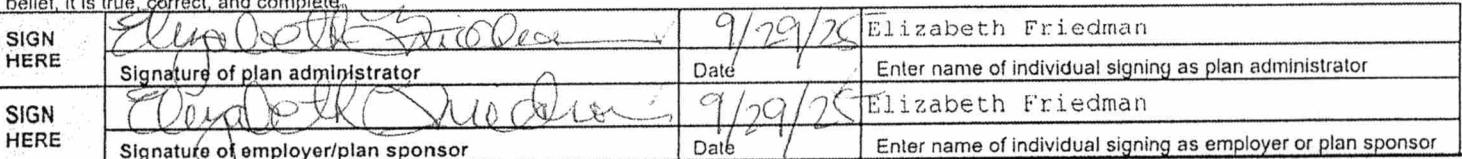 belief, it is true, correct, and complete.
SIGN HERE Elizabeth Friedman 9/29/25 Elizabeth Friedman
Signature of plan administrator Date Enter name of individual signing as plan administrator
SIGN HERE Elizabeth Friedman 9/29/25 Elizabeth Friedman
Signature of employer/plan sponsor Date Enter name of individual signing as employer or plan sponsor